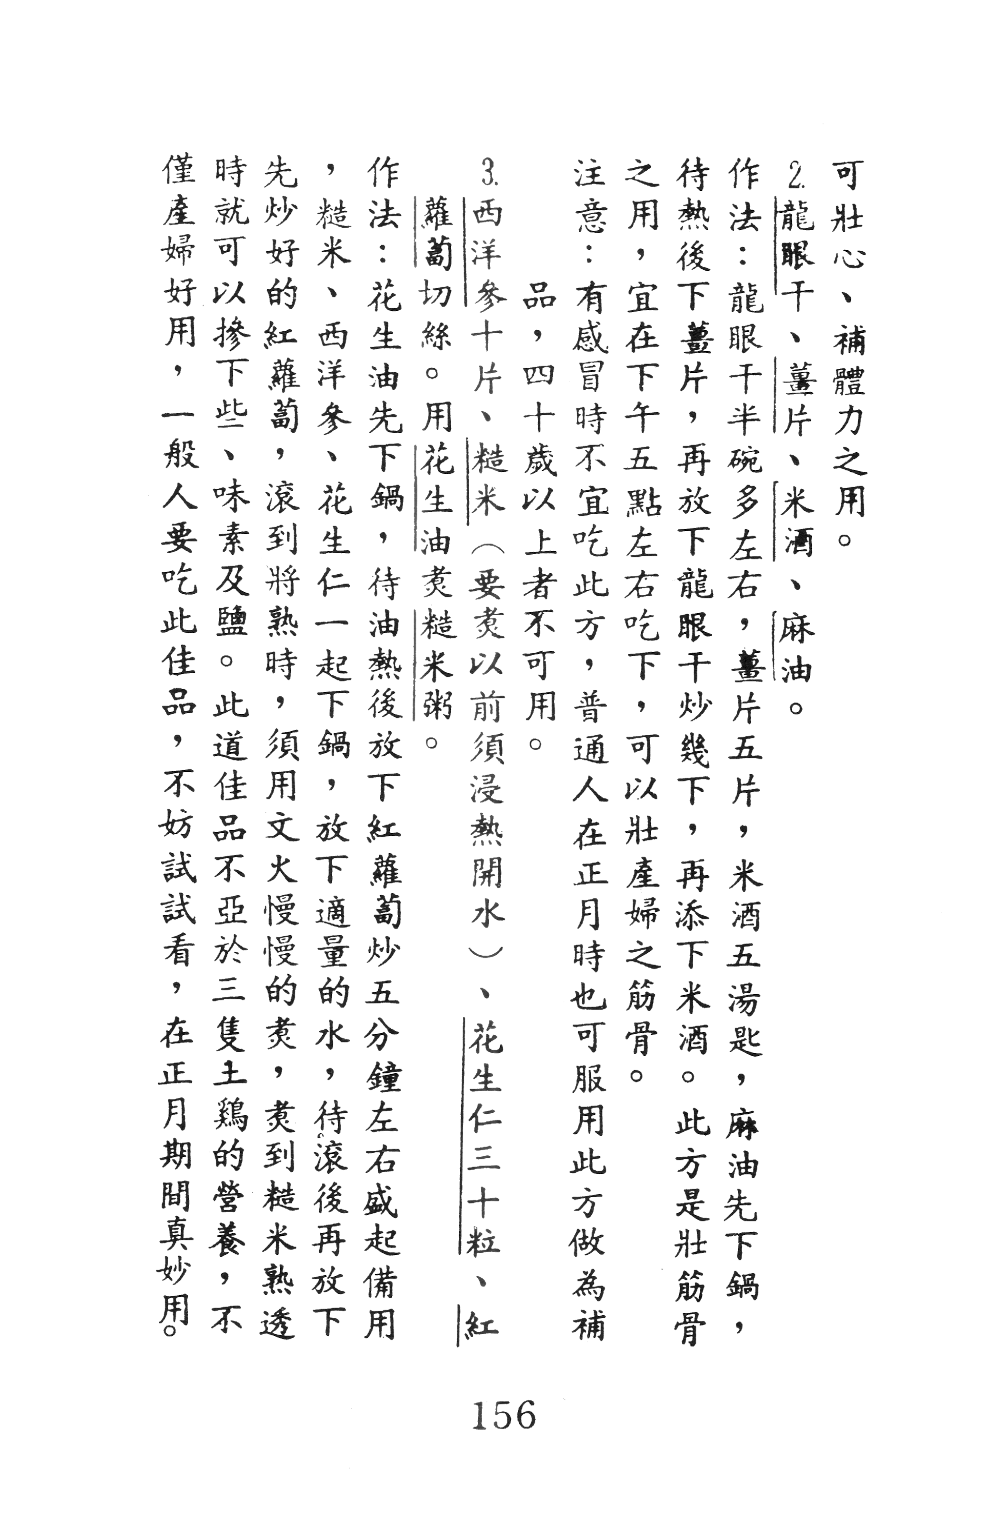 可壯心、補體力之用。
2.龍眼干、薑片、米酒、麻油。
作法：龍眼干半碗多左右，薑片五片，米酒五湯匙，麻油先下鍋，
待熱後下薑片，再放下龍眼干炒幾下，再添下米酒。此方是壯筋骨
之用，宜在下午五點左右吃下，可以壯產婦之筋骨。
注意：有感冒時不宜吃此方，普通人在正月時也可服用此方做為補
品，四十歲以上者不可用。
3.西洋參十片、糙米（要煑以前須浸熱開水）、花生仁三十粒、紅
蘿蔔切絲。用花生油煑糙米粥。
作法：花生油先下鍋，待油熱後放下紅蘿蔔炒五分鐘左右盛起備用
，糙米、西洋參、花生仁一起下鍋，放下適量的水，待滾後再放下
先炒好的紅蘿蔔，滾到將熟時，須用文火慢慢的煑，煑到糙米熟透
時就可以摻下些、味素及鹽。此道佳品不亞於三隻土鷄的營養，不
僅產婦好用，一般人要吃此佳品，不妨試試看，在正月期間真妙用。
156